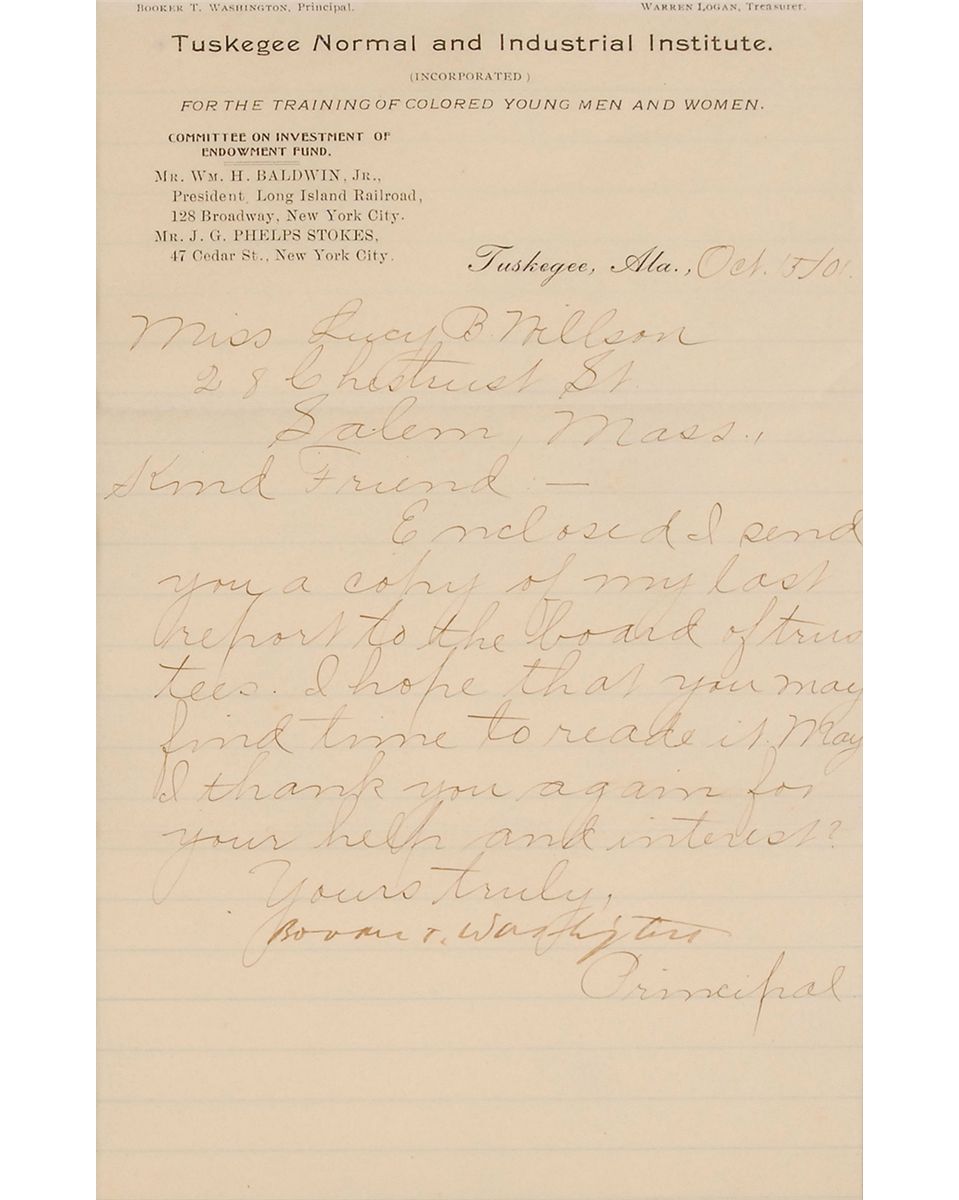 BOOKER T. WASHINGTON, Principal. WARREN LOGAN, Treasurer.
Tuskegee Normal and Industrial Institute.
(INCORPORATED)
FOR THE TRAINING OF COLORED YOUNG MEN AND WOMEN.
COMMITTEE ON INVESTMENT OF
ENDOWMENT FUND.
MR. WM. H. BALDWIN, JR.,
President, Long Island Railroad,
128 Broadway, New York City.
MR. J. G. PHELPS STOKES,
47 Cedar St., New York City.
Tuskegee, Ala., Oct. 15/01.
Miss Lucy B. Willson
28 Chestnust St.
Salem, Mass.,
Kind Friend :—
Enclosed I send
you a copy of my last
report to the board of trus
tees. I hope that you may
find time to reade it. May
I thank you again for
your help and interest?
Yours truly,
Booker T. Washington
Principal